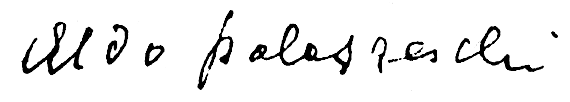 Aldo Palazzeschi